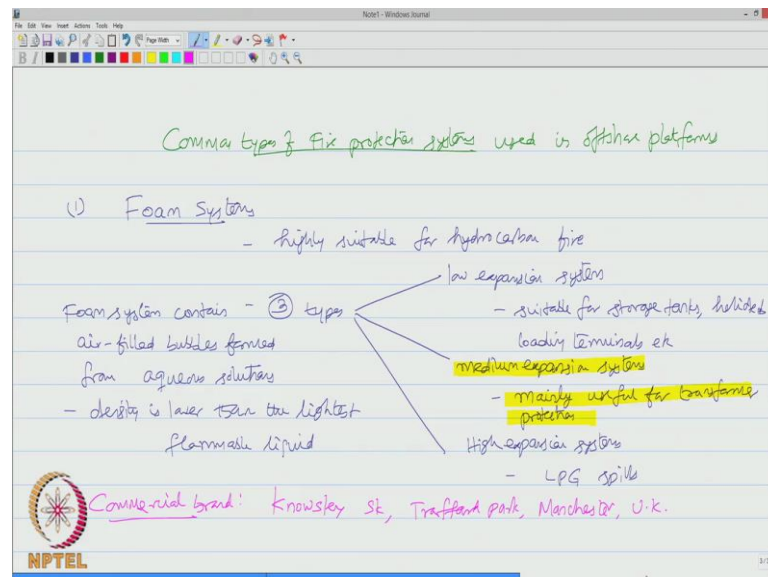 Note1 - Windows Journal
File Edit View Insert Actions Tools Help
Page Width
B I
Common types of Fire protection systems used in offshore platforms
(1) Foam Systems
- highly suitable for hydrocarbon fire
Foam system contain - ③ types
air-filled bubbles formed
from aqueous solutions
- density is lower than the lightest
flammable liquid
low expansion system
- suitable for storage tanks, helideck
loading terminals etc
medium expansion systems
- mainly useful for transformer
protection
High expansion systems
- LPG spills
Commercial brand: Knowsley SK, Trafford park, Manchester, U.K.
NPTEL